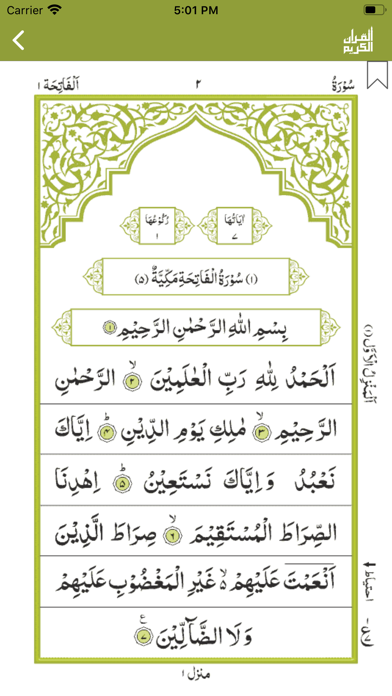 Carrier 5:01 PM
القرآن الكريم
سُوْرَةُ ٢ اَلْفَاتِحَة ١
اٰيَاتُهَا ٧ رُكُوْعُهَا ١
(١) سُوْرَةُ الْفَاتِحَةِ مَكِّيَّةٌ (٥)
بِسْمِ اللّٰهِ الرَّحْمٰنِ الرَّحِيْمِ ١
اَلْحَمْدُ لِلّٰهِ رَبِّ الْعٰلَمِيْنَ ۙ ٢ الرَّحْمٰنِ
الرَّحِيْمِ ۙ ٣ مٰلِكِ يَوْمِ الدِّيْنِ ؕ ٤ اِيَّاكَ
نَعْبُدُ وَاِيَّاكَ نَسْتَعِيْنُ ؕ ٥ اِهْدِنَا
الصِّرَاطَ الْمُسْتَقِيْمَ ۙ ٦ صِرَاطَ الَّذِيْنَ
اَنْعَمْتَ عَلَيْهِمْ ۙ۬ غَيْرِ الْمَغْضُوْبِ عَلَيْهِمْ
وَلَا الضَّآلِّيْنَ ٧ ع
اَلْمَنْزِلُ الْاَوَّلُ (١)
احتیاط
منزل ١